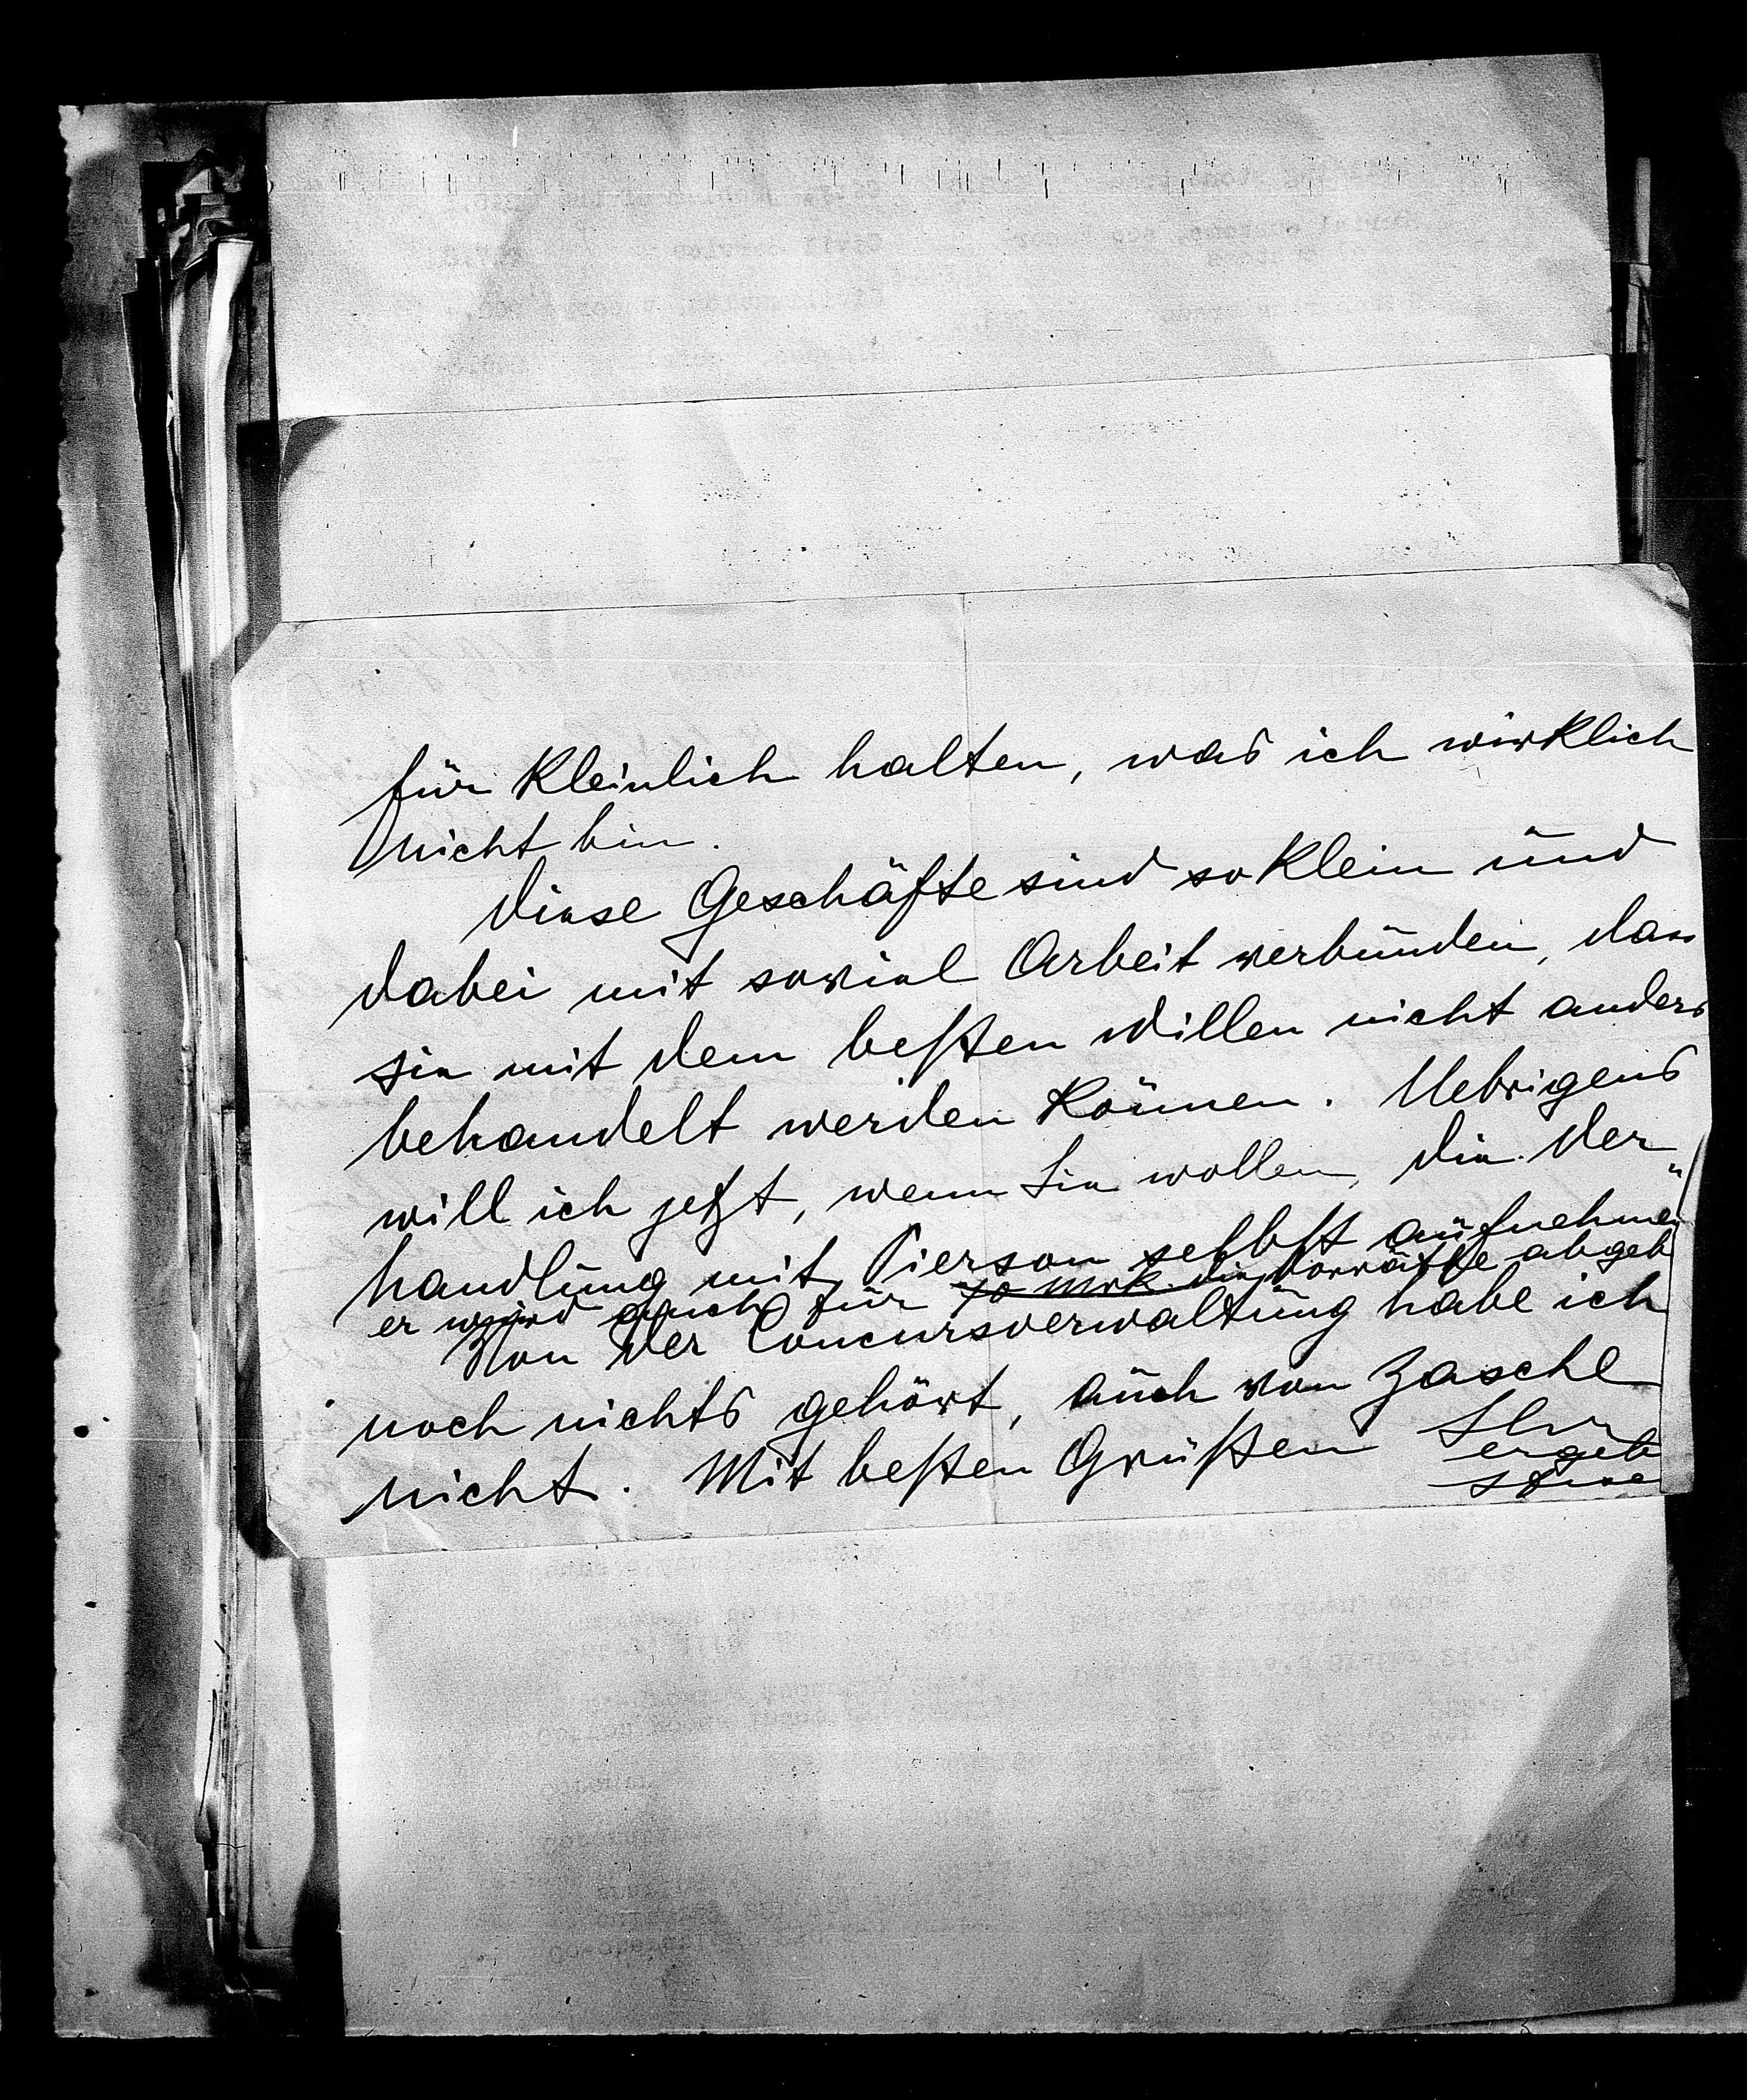 für kleinlich halten, was ich wirklich
nicht bin.
Diese Geschäfte sind so klein und
dabei mit soviel Arbeit verbunden, dass
sie mit dem besten Willen nicht anders
behandelt werden können. Uebrigens
will ich jetzt, wenn Sie wollen, die Ver„
handlung mit Pierson selbst aufnehmen
er wird auch für 70 Mrk. die Vorräthe abgeb
Von der Concursverwaltung habe ich
noch nichts gehört, auch von Zasche
nicht. Mit besten Grüßen Ihr
ergeb